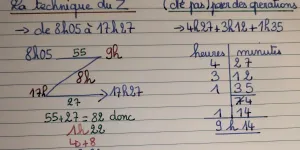 La technique du Z
→ de 8h05 à 17h27
8h05 55 9h
8h
17h → 17h27
27
55+27 = 82 donc
1h 22
40+8
(de pas) par des opérations
→ 4h27+3h12+1h35
heures | minutes
4 | 27
3 | 12
1 | 35
74
1 | 14
9 h 14